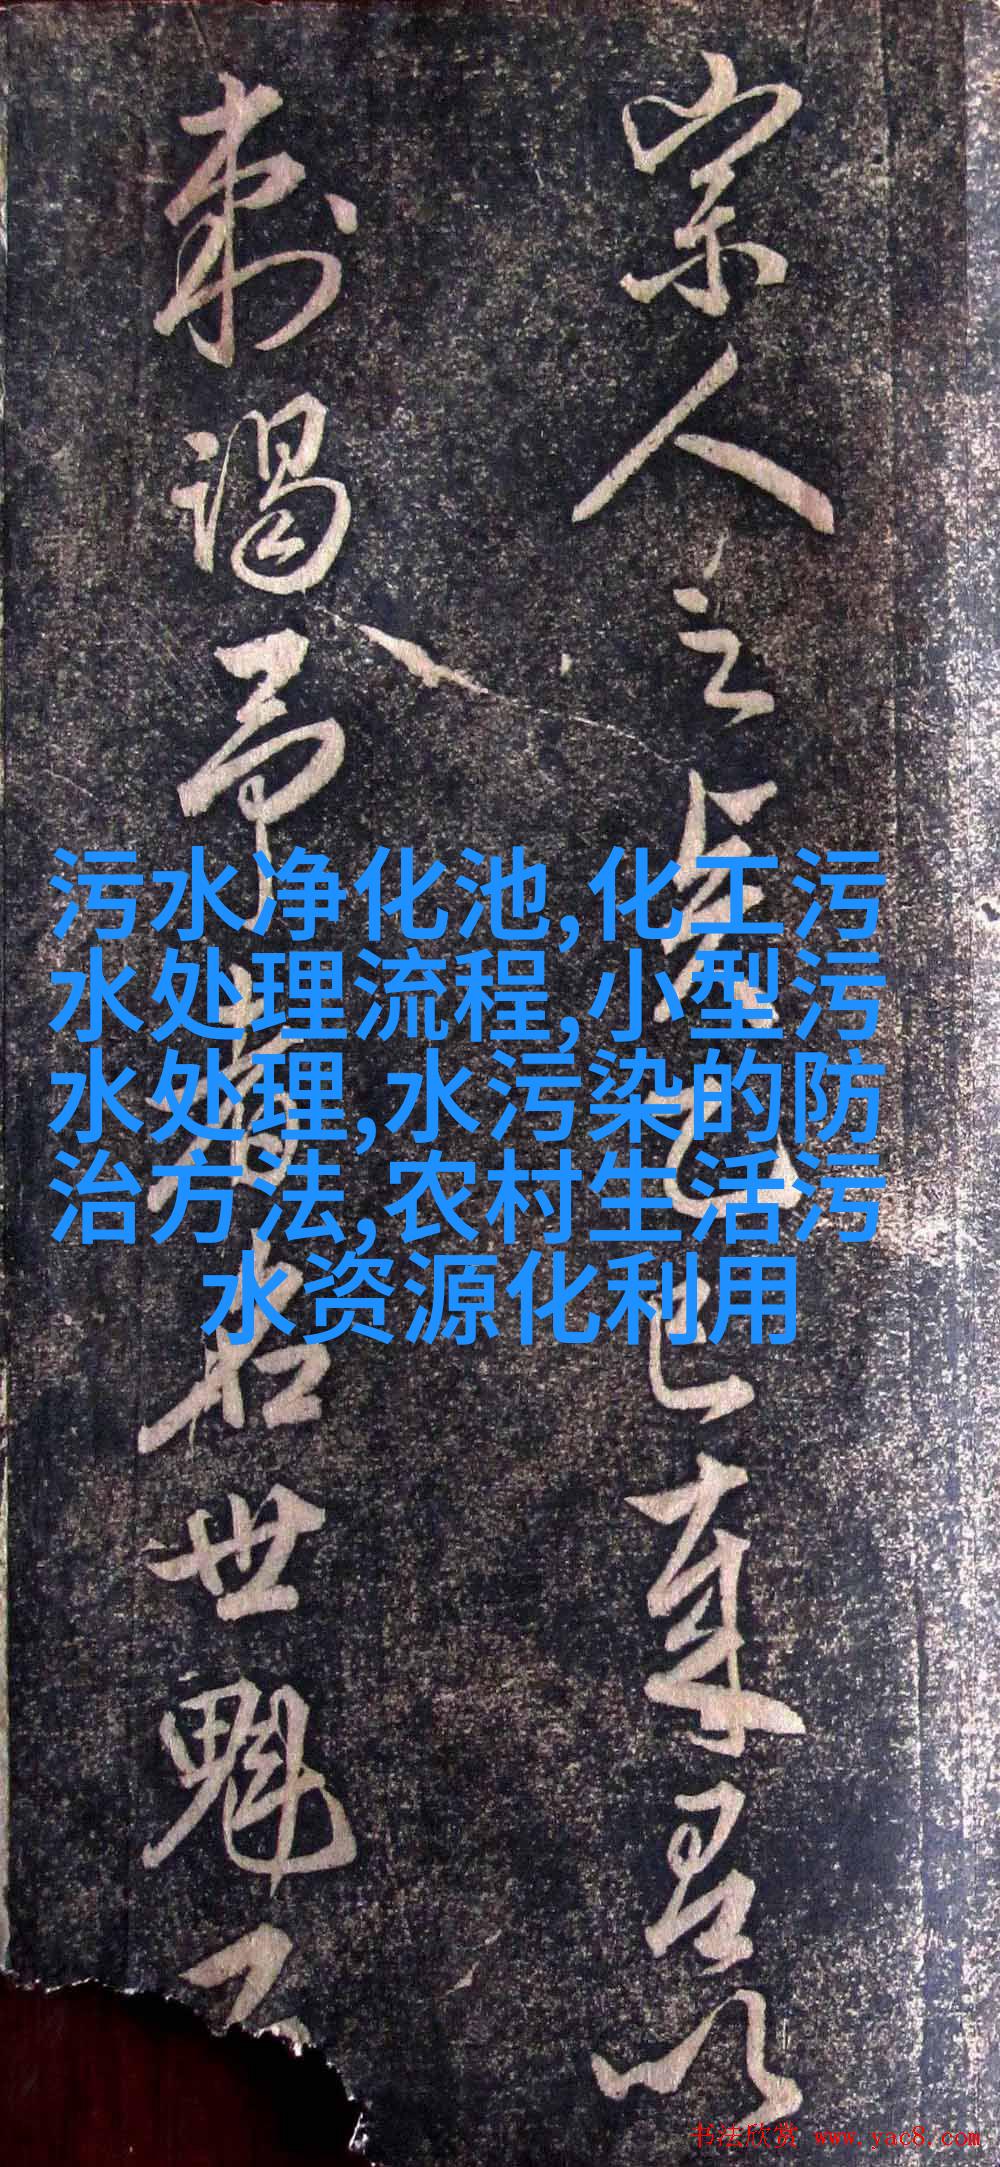 污水净化池,化工污
水处理流程,小型污
水处理,水污染的防
治方法,农村生活污
水资源化利用
人之也已来君以
刺謁世魁
书法欣赏 www.yac8.com